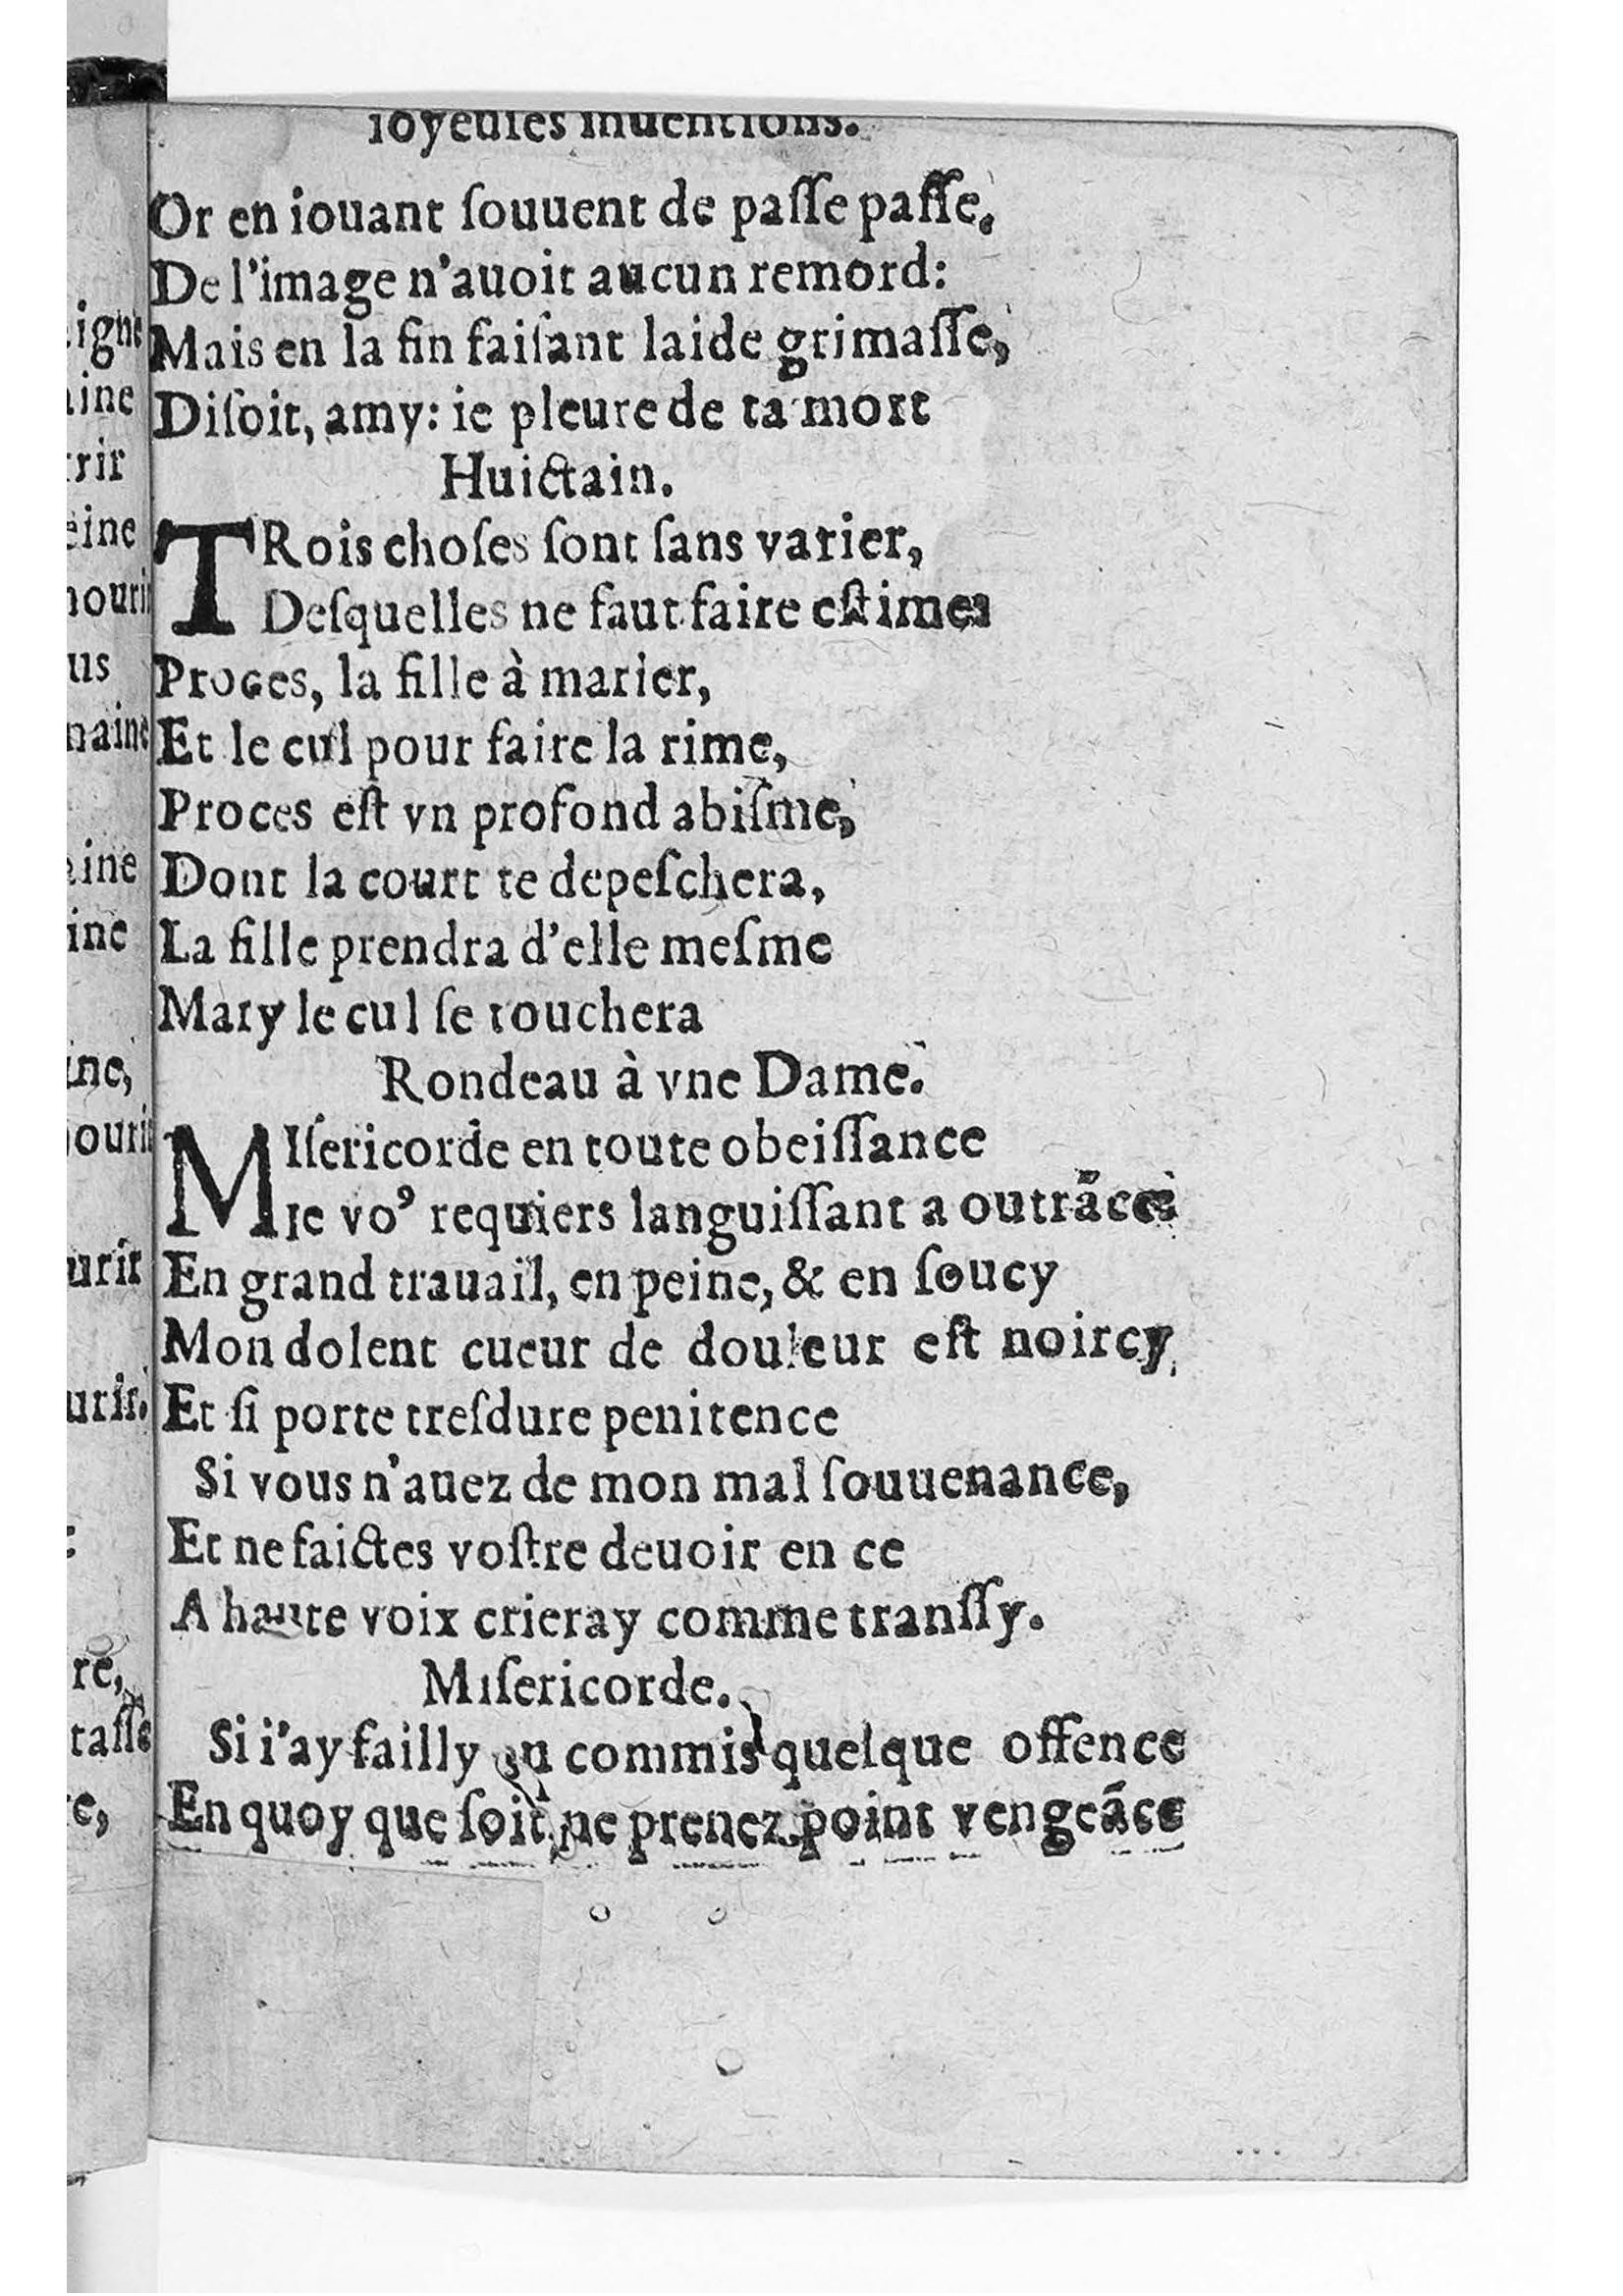 ioyeuſes inuentions.
Or en iouant ſouuent de paſſe paſſe,
De l'image n'auoit aucun remord:
Mais en la fin faiſant laide grimaſſe,
Diſoit, amy: ie pleure de ta mort
Huictain.
TRois choſes ſont ſans varier,
Deſquelles ne faut faire eſtime:
Proces, la fille à marier,
Et le cul pour faire la rime,
Proces eſt vn profond abiſme,
Dont la court te depeſchera,
La fille prendra d'elle meſme
Mary le cul ſe touchera
Rondeau à vne Dame.
MIſericorde en toute obeiſſance
Ie vo⁹ requiers languiſſant a outrãce
En grand trauail, en peine, & en ſoucy
Mon dolent cueur de douleur eſt noircy,
Et ſi porte treſdure penitence
Si vous n'auez de mon mal ſouuenance,
Et ne faictes voſtre deuoir en ce
A haute voix crieray comme tranſſy.
Miſericorde.
Si i'ay failly ou commis quelque offence
En quoy que ſoit ne prenez point vengeãce